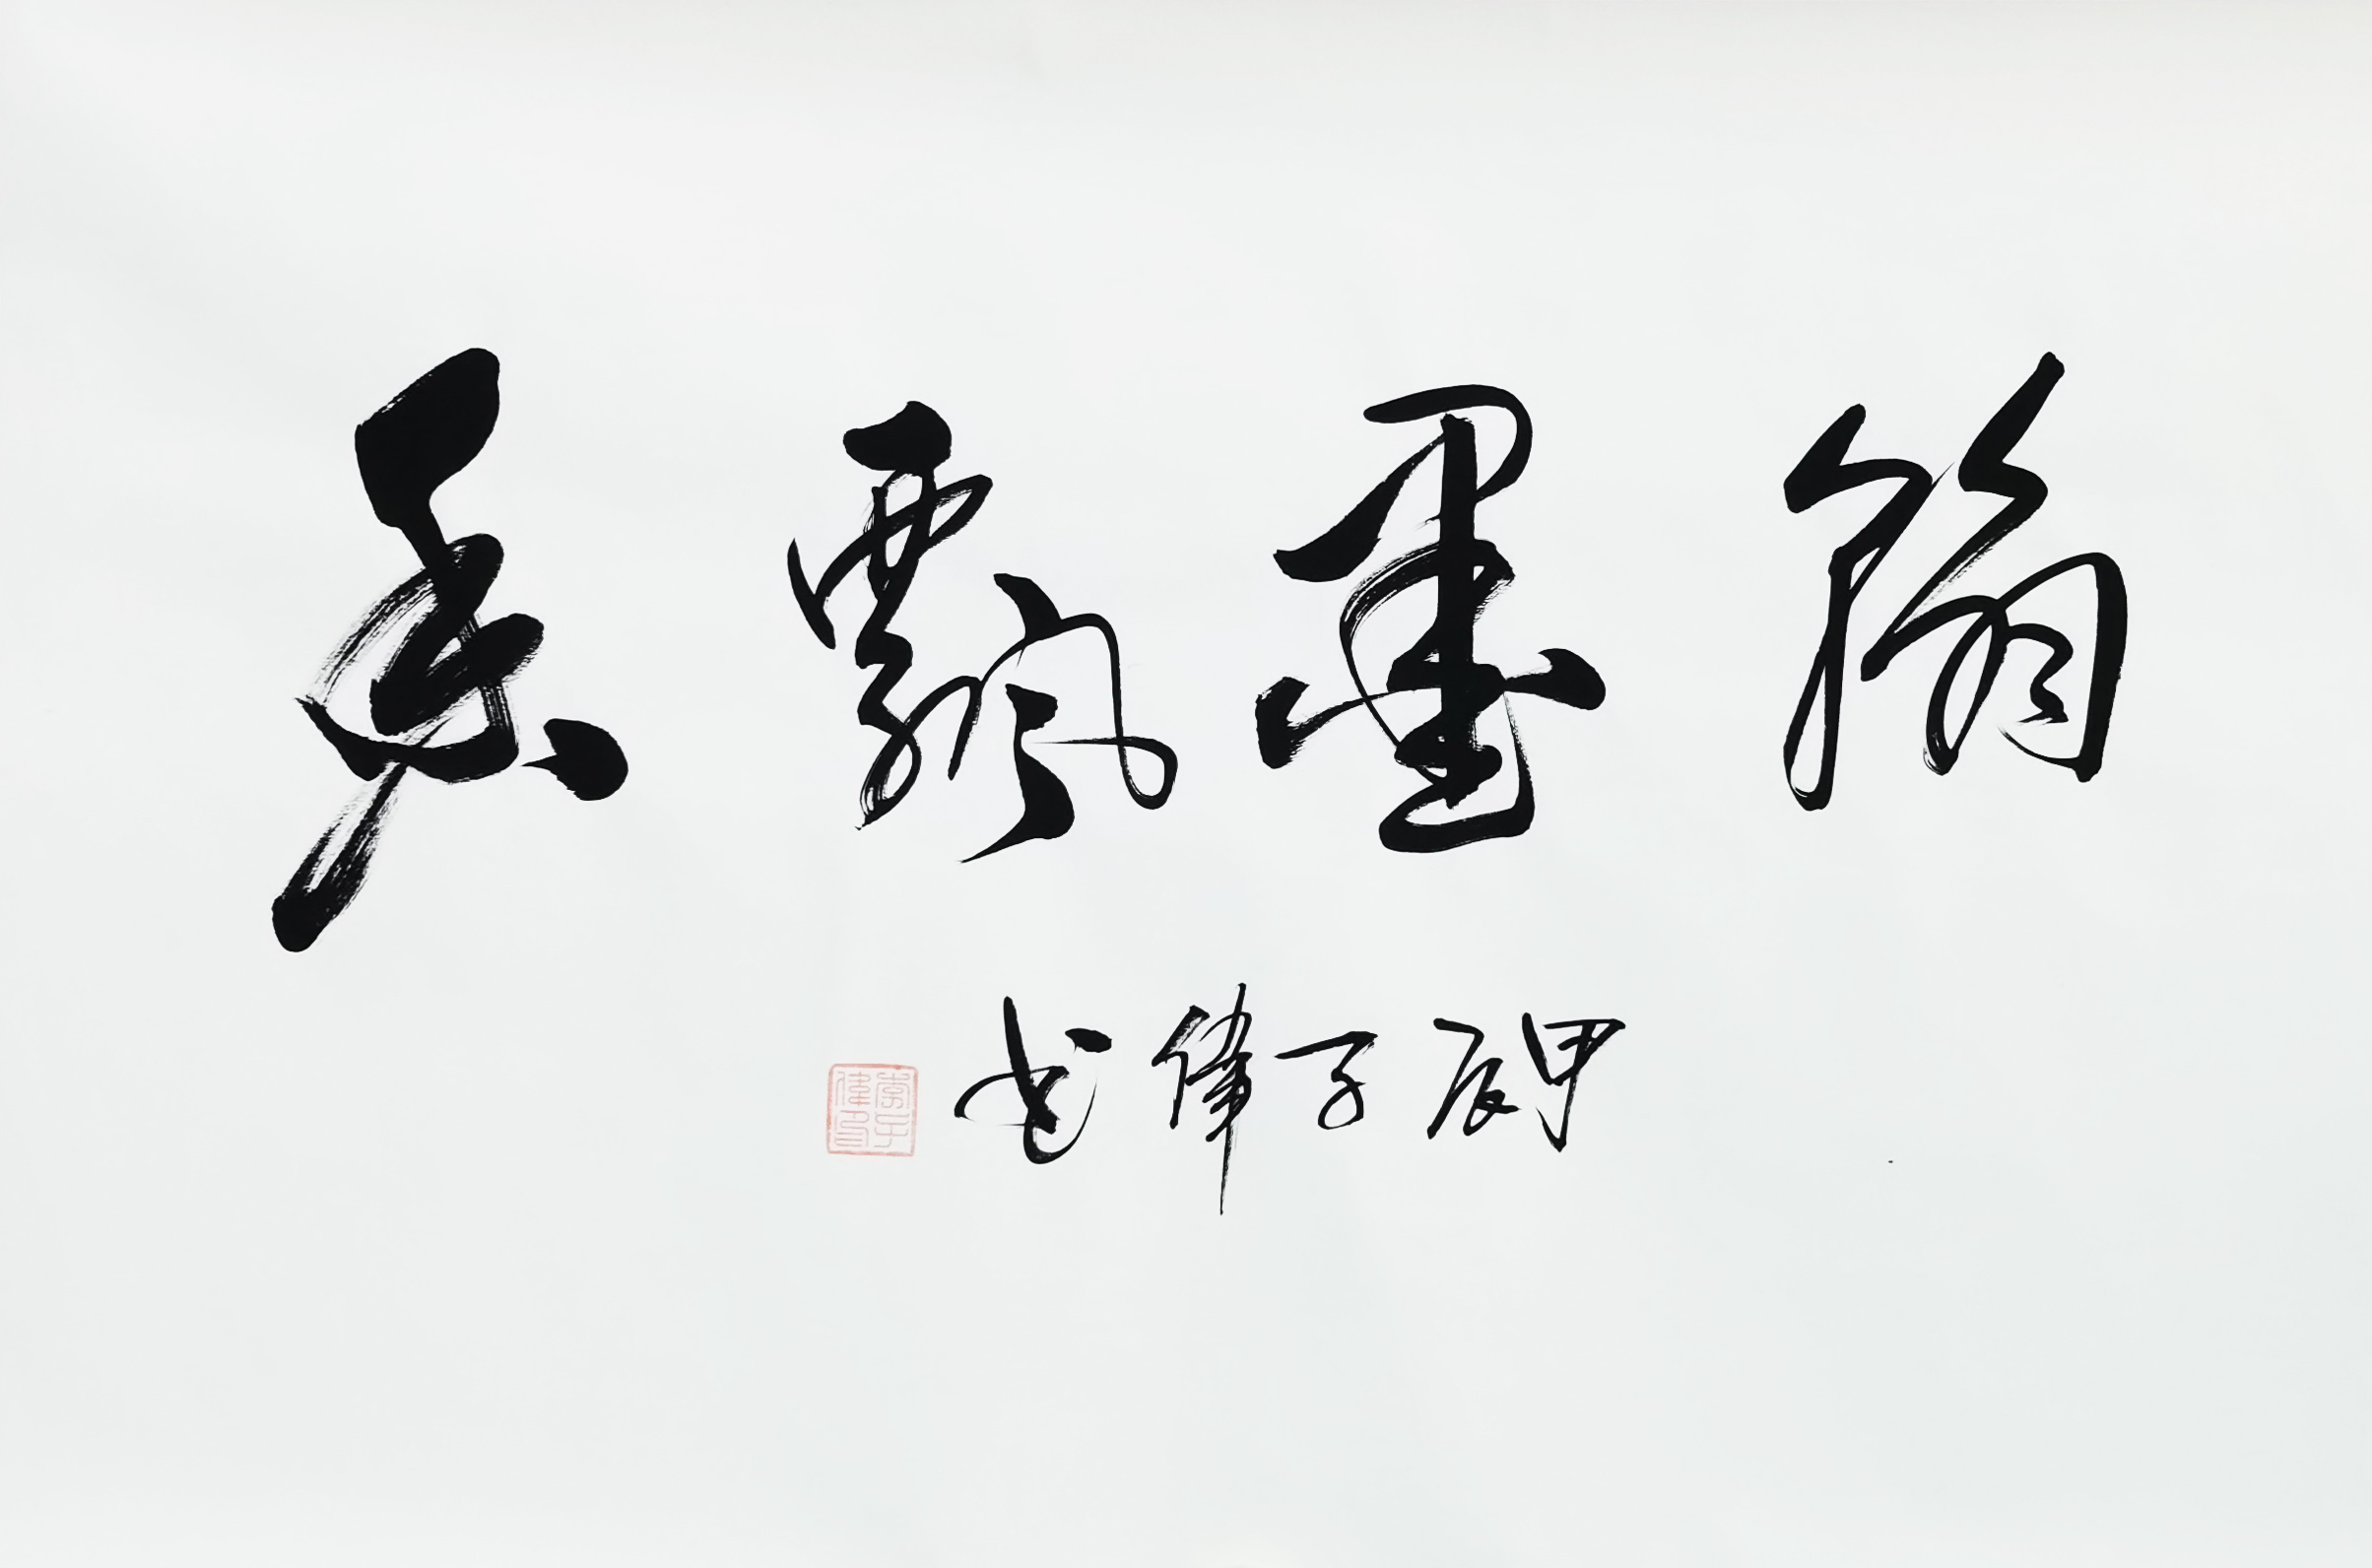 翰墨飘香
甲辰子偉书